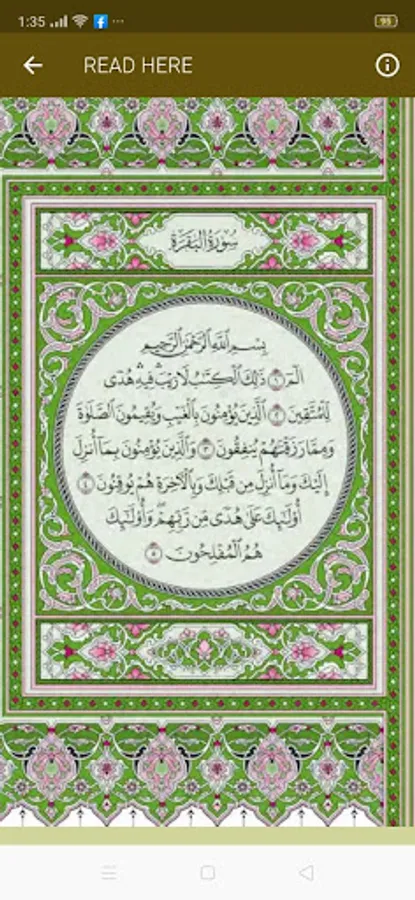 1:35
95
READ HERE
سُورَةُ الْبَقَرَةِ
بِسْمِ اللَّهِ الرَّحْمَٰنِ الرَّحِيمِ
الٓمٓ ١ ذَٰلِكَ الْكِتَٰبُ لَا رَيْبَ ۛ فِيهِ ۛ هُدًى
لِّلْمُتَّقِينَ ٢ الَّذِينَ يُؤْمِنُونَ بِالْغَيْبِ وَيُقِيمُونَ الصَّلَوٰةَ
وَمِمَّا رَزَقْنَٰهُمْ يُنفِقُونَ ٣ وَالَّذِينَ يُؤْمِنُونَ بِمَآ أُنزِلَ
إِلَيْكَ وَمَآ أُنزِلَ مِن قَبْلِكَ وَبِالْـَٔاخِرَةِ هُمْ يُوقِنُونَ ٤
أُو۟لَٰٓئِكَ عَلَىٰ هُدًى مِّن رَّبِّهِمْ ۖ وَأُو۟لَٰٓئِكَ
هُمُ الْمُفْلِحُونَ ٥